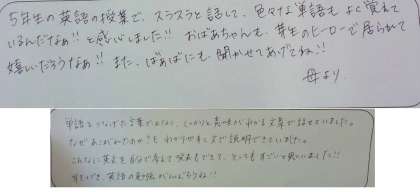 5年生の英語の授業で、スラスラと話して、色々な単語もよく覚えて
いるんだなぁ!!と感心しました!! おばあちゃんも、芽生のヒーローで居られて
嬉しいだろうなぁ!! また、ばぁばにも、聞かせてあげてね!!
母より
単語をつなげた言葉ではなく、しっかりと意味がわかる文章で話せていました。
なぜあこがれたのか?もわかりやすく文で説明できていました。
こんなに英文を自分で考えて発表もできて、とってもすごいと思いました!!
英語の勉強がんばろうね!!